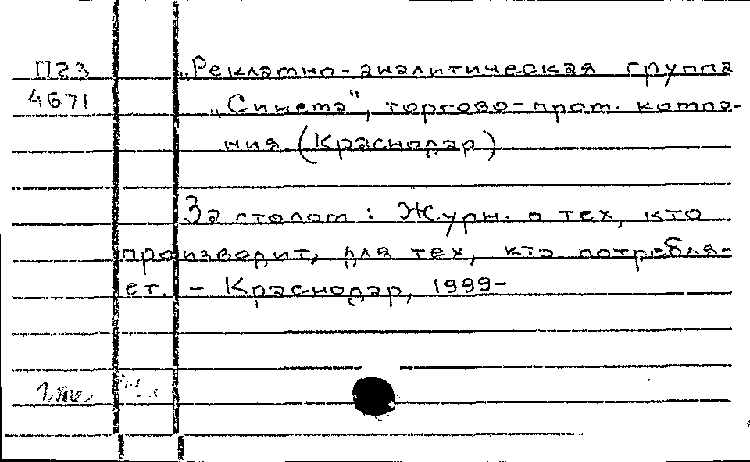 П23 "Рекламно-аналитическая группа
4671 "Синета", торгово-пром. компа-
ния. (Краснодар)
За столом : Журн. о тех, кто
производит, для тех, кто потребля-
ет. - Краснодар, 1999-